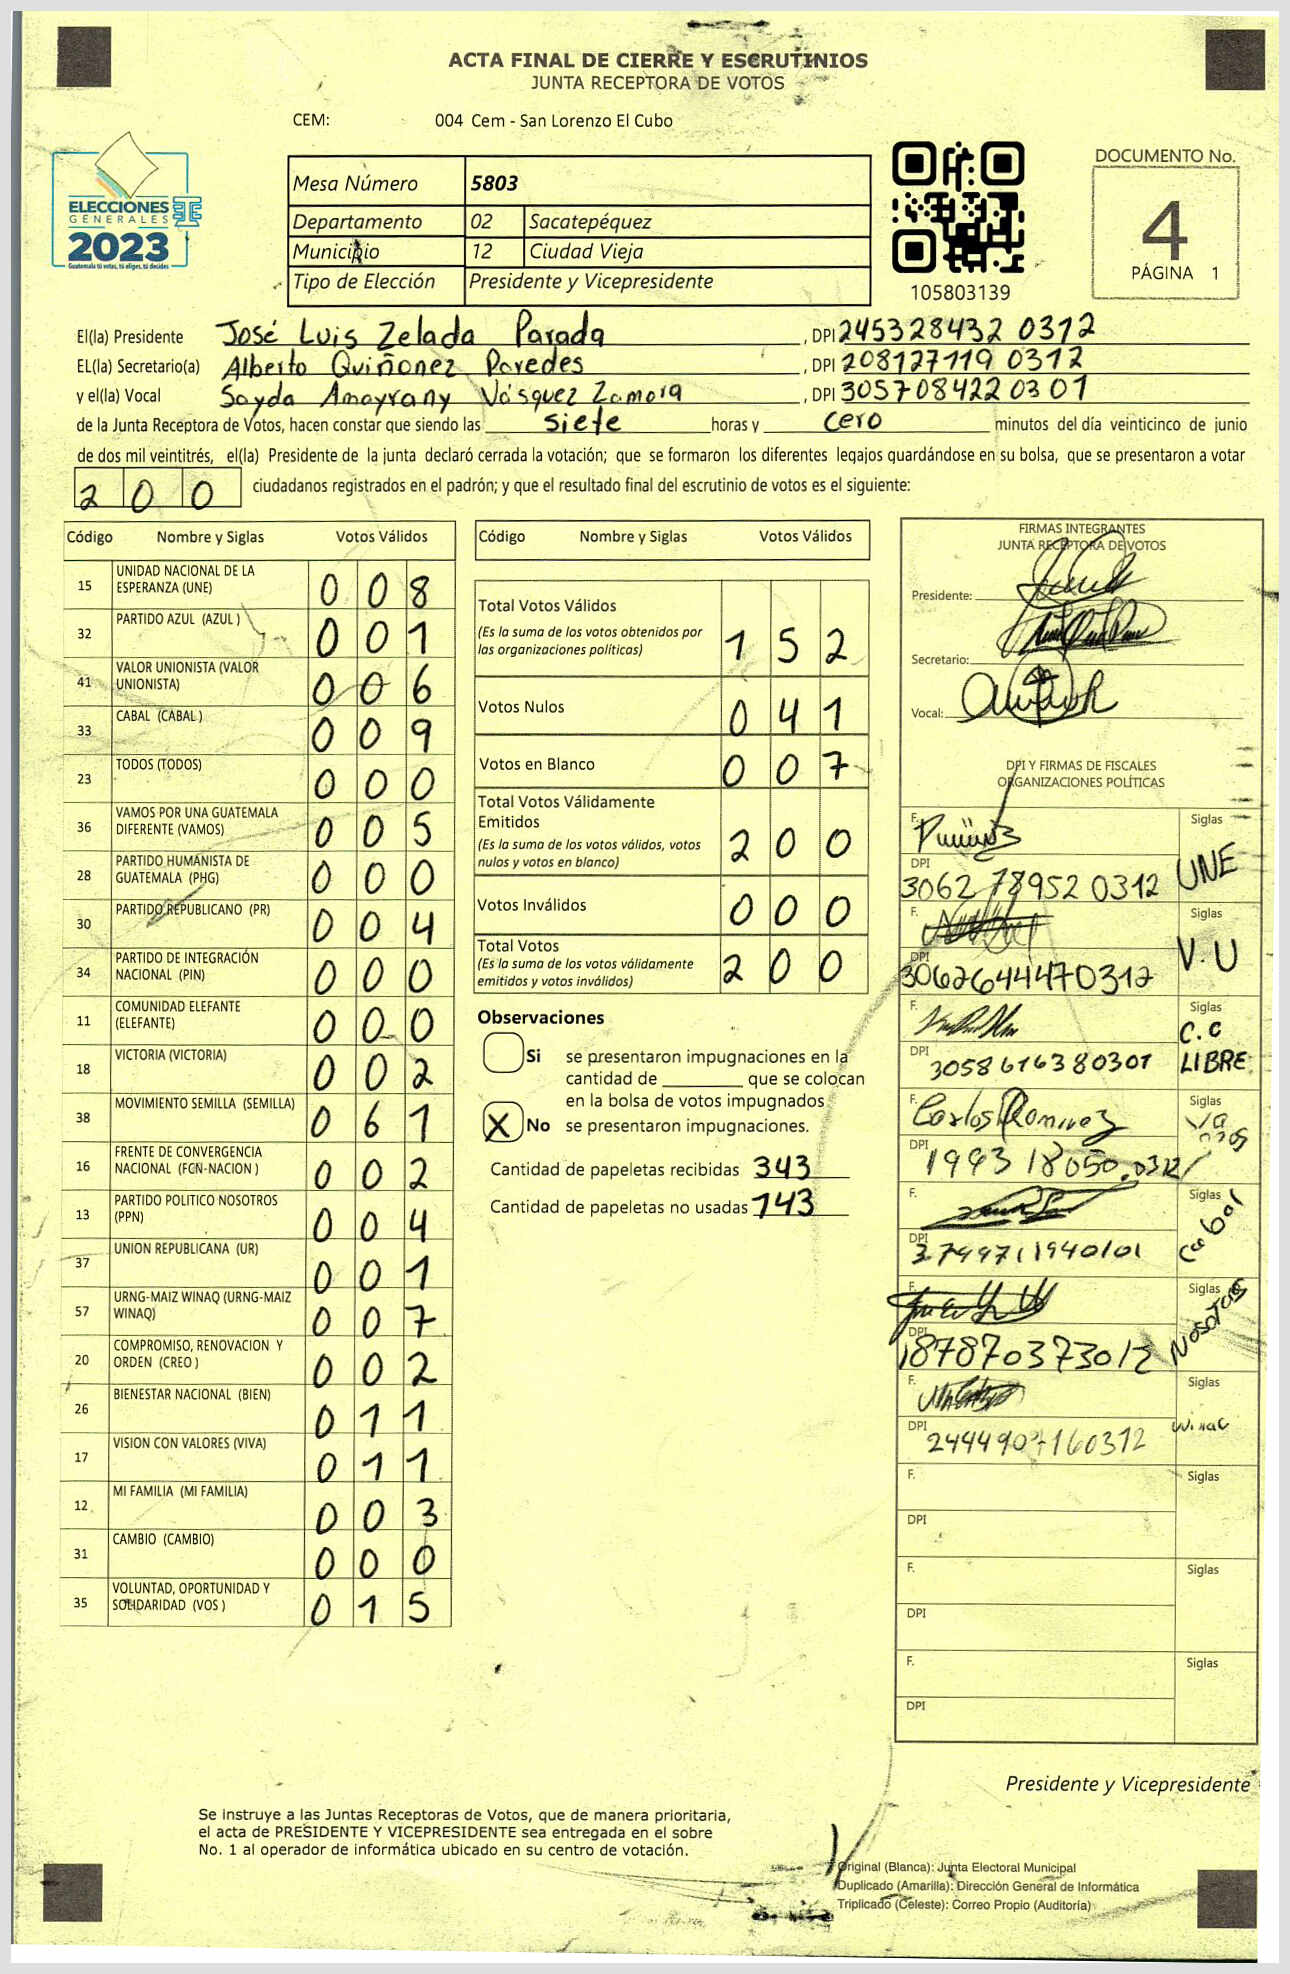 ACTA FINAL DE CIERRE Y ESCRUTINIOS
JUNTA RECEPTORA DE VOTOS
CEM: 004 Cem - San Lorenzo El Cubo
ELECCIONES
GENERALES
2023
Guatemala tú votas, tú eliges, tú decides
Mesa Número 5803
Departamento 02 Sacatepéquez
Municipio 12 Ciudad Vieja
Tipo de Elección Presidente y Vicepresidente
105803139
DOCUMENTO No.
4
PÁGINA 1
El(la) Presidente José Luis Zelada Parada , DPI 245328432 0312
EL(la) Secretario(a) Alberto Quiñonez Paredes , DPI 208127119 0312
y el(la) Vocal Sayda Amayrany Vásquez Zamora , DPI 305708422 03 01
de la Junta Receptora de Votos, hacen constar que siendo las siete horas y cero minutos del día veinticinco de junio
de dos mil veintitrés, el(la) Presidente de la junta declaró cerrada la votación; que se formaron los diferentes legajos guardándose en su bolsa, que se presentaron a votar
2 0 0 ciudadanos registrados en el padrón; y que el resultado final del escrutinio de votos es el siguiente:
Código Nombre y Siglas Votos Válidos
15 UNIDAD NACIONAL DE LA
ESPERANZA (UNE) 0 0 8
32 PARTIDO AZUL (AZUL ) 0 0 1
41 VALOR UNIONISTA (VALOR
UNIONISTA) 0 0 6
33 CABAL (CABAL ) 0 0 9
23 TODOS (TODOS) 0 0 0
36 VAMOS POR UNA GUATEMALA
DIFERENTE (VAMOS) 0 0 5
28 PARTIDO HUMANISTA DE
GUATEMALA (PHG) 0 0 0
30 PARTIDO REPUBLICANO (PR) 0 0 4
34 PARTIDO DE INTEGRACIÓN
NACIONAL (PIN) 0 0 0
11 COMUNIDAD ELEFANTE
(ELEFANTE) 0 0 0
18 VICTORIA (VICTORIA) 0 0 2
38 MOVIMIENTO SEMILLA (SEMILLA) 0 6 1
16 FRENTE DE CONVERGENCIA
NACIONAL (FCN-NACION ) 0 0 2
13 PARTIDO POLITICO NOSOTROS
(PPN) 0 0 4
37 UNION REPUBLICANA (UR) 0 0 1
57 URNG-MAIZ WINAQ (URNG-MAIZ
WINAQ) 0 0 7
20 COMPROMISO, RENOVACION Y
ORDEN (CREO ) 0 0 2
26 BIENESTAR NACIONAL (BIEN) 0 1 1
17 VISION CON VALORES (VIVA) 0 1 1
12 MI FAMILIA (MI FAMILIA) 0 0 3
31 CAMBIO (CAMBIO) 0 0 0
35 VOLUNTAD, OPORTUNIDAD Y
SOLIDARIDAD (VOS ) 0 1 5
Código Nombre y Siglas Votos Válidos
Total Votos Válidos
(Es la suma de los votos obtenidos por
las organizaciones políticas) 1 5 2
Votos Nulos 0 4 1
Votos en Blanco 0 0 7
Total Votos Válidamente
Emitidos
(Es la suma de los votos válidos, votos
nulos y votos en blanco) 2 0 0
Votos Inválidos 0 0 0
Total Votos
(Es la suma de los votos válidamente
emitidos y votos inválidos) 2 0 0
Observaciones
Si se presentaron impugnaciones en la
cantidad de ________ que se colocan
en la bolsa de votos impugnados
X No se presentaron impugnaciones.
Cantidad de papeletas recibidas 343
Cantidad de papeletas no usadas 143
FIRMAS INTEGRANTES
JUNTA RECEPTORA DE VOTOS
Presidente:
Secretario:
Vocal:
DPI Y FIRMAS DE FISCALES
ORGANIZACIONES POLÍTICAS
F. Siglas
DPI 3062 78952 0312 UNE
F. Siglas
DPI 3062644470312 V.U
F. Siglas
DPI 3058616380301 C.C LIBRE
F. Carlos Ramirez Siglas
DPI 1993 18050 0312
F. Siglas
DPI 3799711940101 Cabal
F. Siglas
DPI 187870373012 NOSOTROS
F. Siglas
DPI Winac
F. Siglas
DPI
F. Siglas
DPI
F. Siglas
DPI
Presidente y Vicepresidente
Se instruye a las Juntas Receptoras de Votos, que de manera prioritaria,
el acta de PRESIDENTE Y VICEPRESIDENTE sea entregada en el sobre
No. 1 al operador de informática ubicado en su centro de votación.
Original (Blanca): Junta Electoral Municipal
Duplicado (Amarilla): Dirección General de Informática
Triplicado (Celeste): Correo Propio (Auditoría)